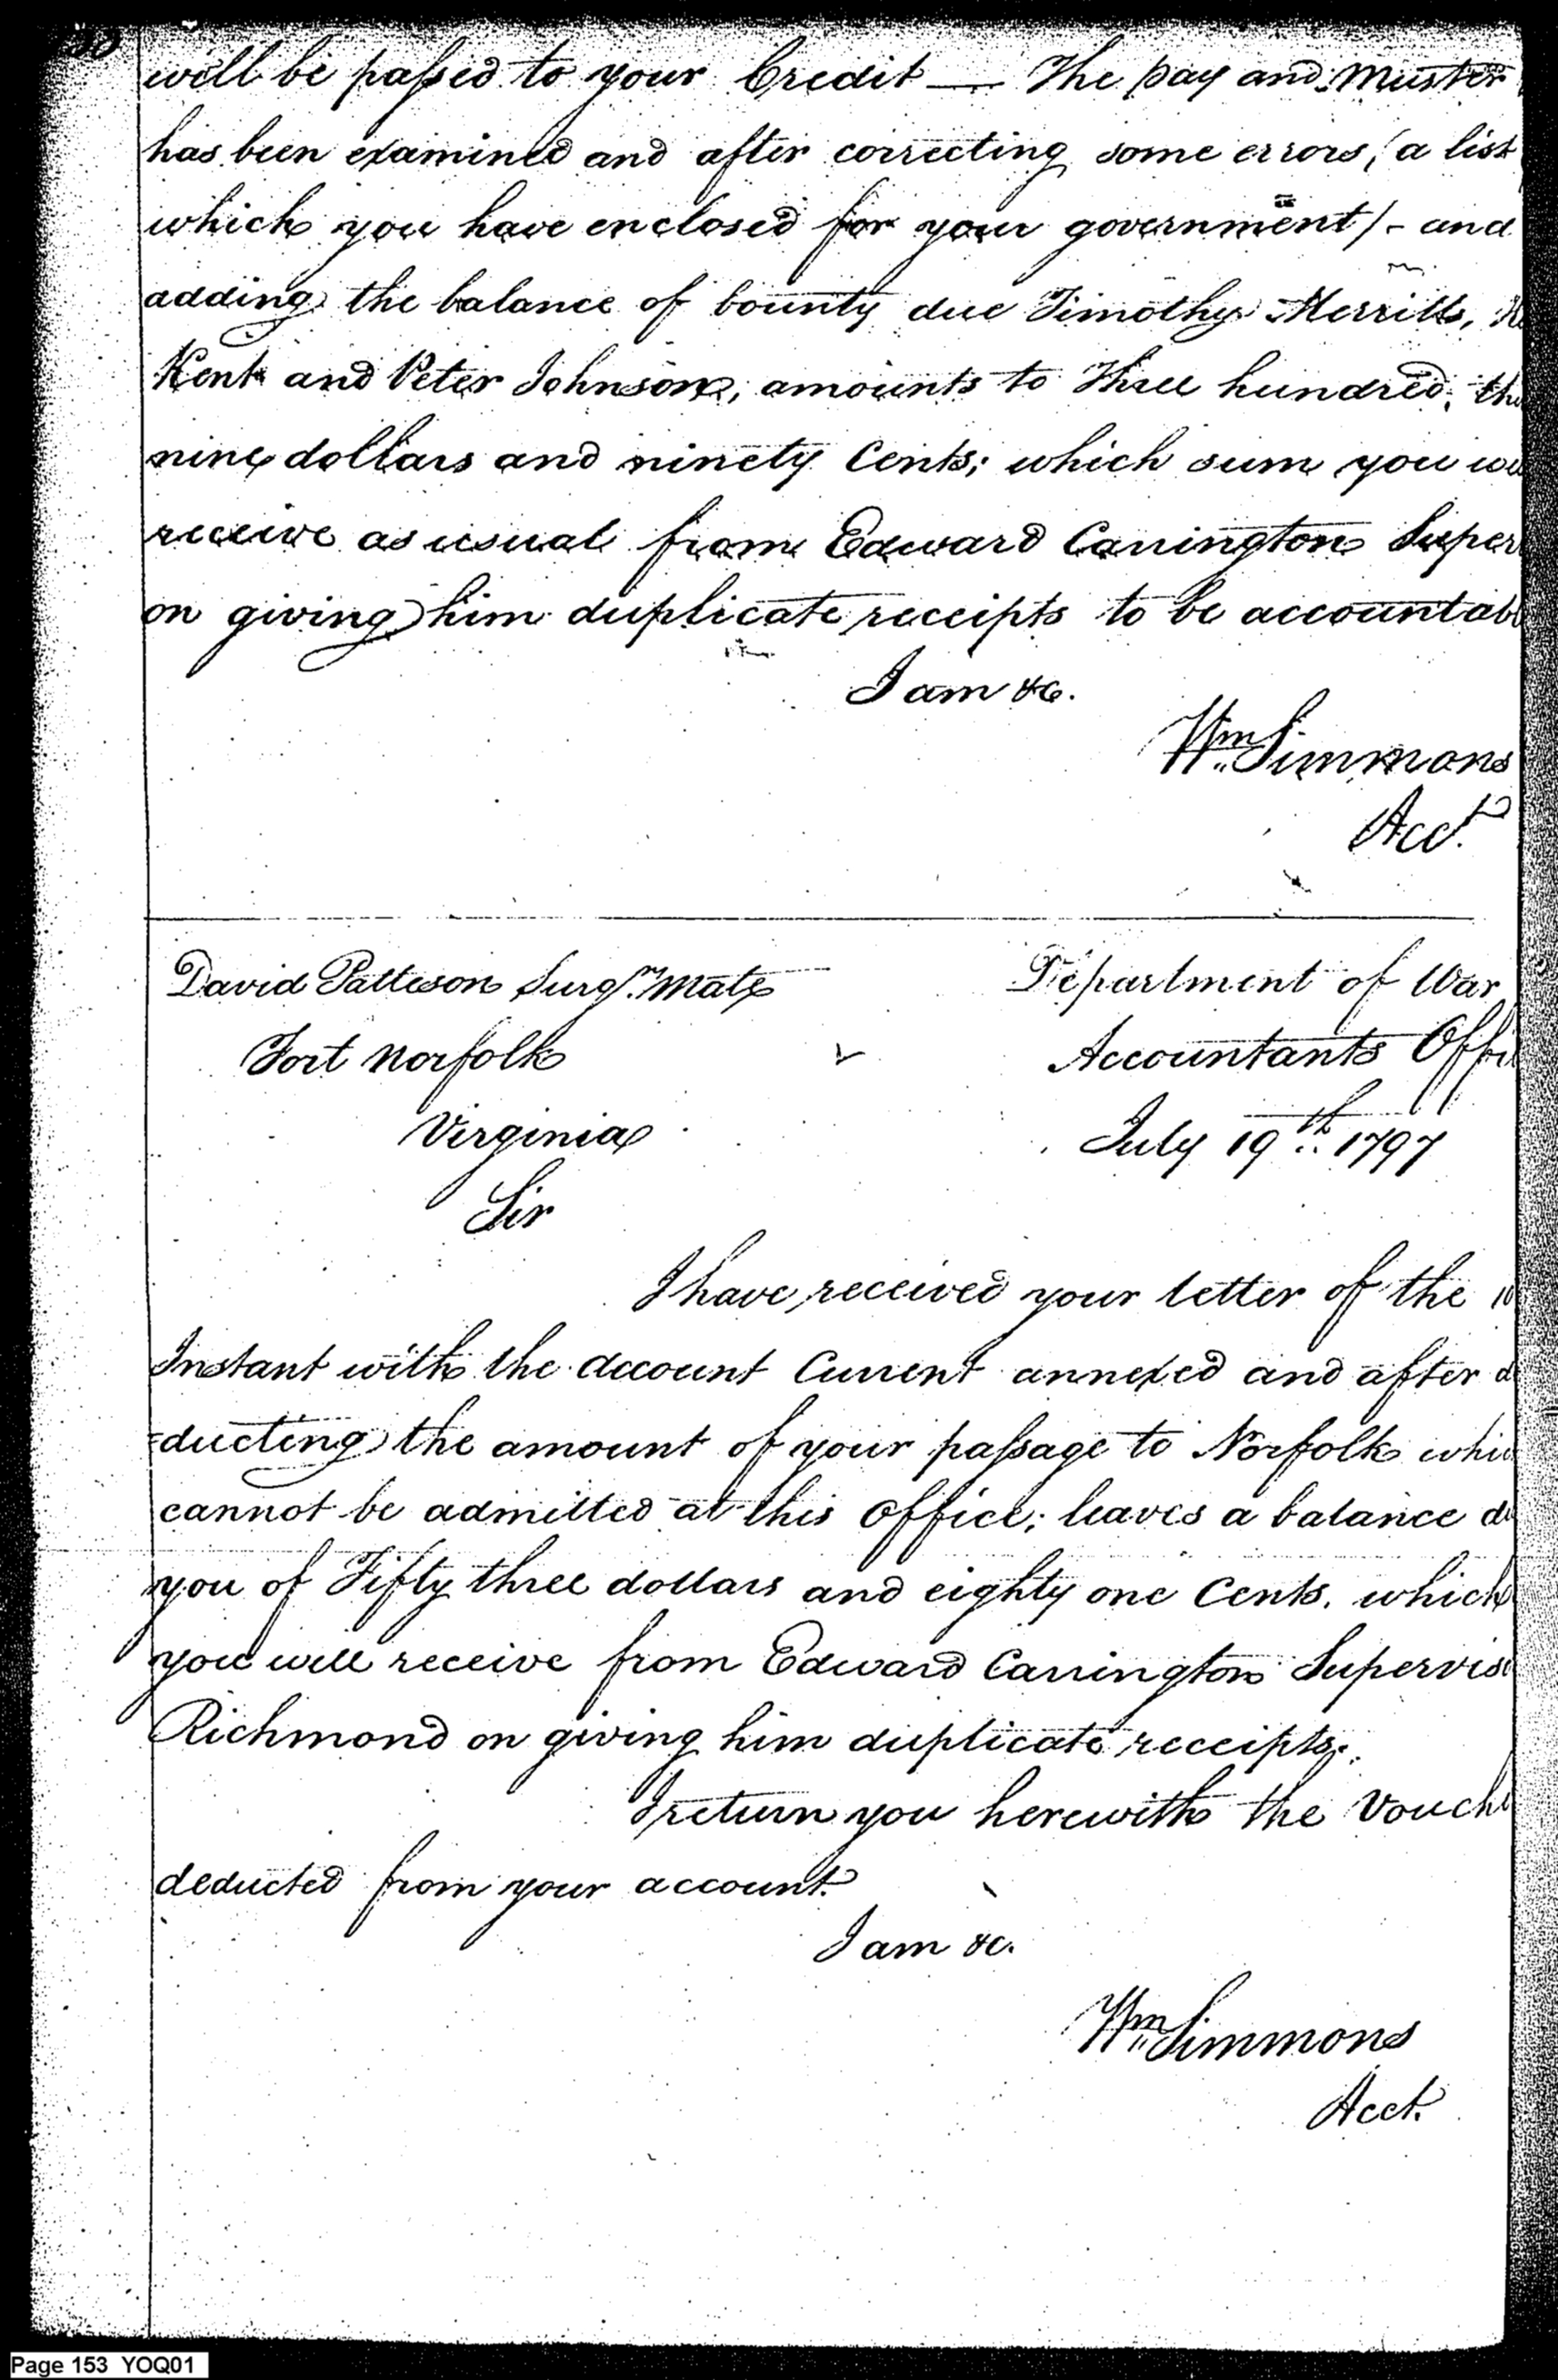 will be passed to your Credit — The pay and Muster
has been examined and after correcting some errors, (a list
which you have enclosed for your government) - and
adding the balance of bounty due Timothy Merrill,
Kent and Peter Johnson, amounts to Three hundred, th
nine dollars and ninety Cents; which sum you w
receive as usual from Edward Carrington Super
on giving him duplicate receipts to be accountab
I am &c.
Wm Simmons
Acct.
David Patteson Surgn. Mate
Department of War
Fort Norfolk
Accountants Offi
Virginia
July 19th 1797
Sir
I have received your letter of the 10
Instant with the account Current annexed and after d
=ducting the amount of your passage to Norfolk whi
cannot be admitted at this office; leaves a balance d
you of Fifty three dollars and eighty one Cents. which
you will receive from Edward Carrington Superviso
Richmond on giving him duplicate receipts.
I return you herewith the Vouch
deducted from your account.
I am &c.
Wm Simmons
Acct.
Page 153 YOQ01